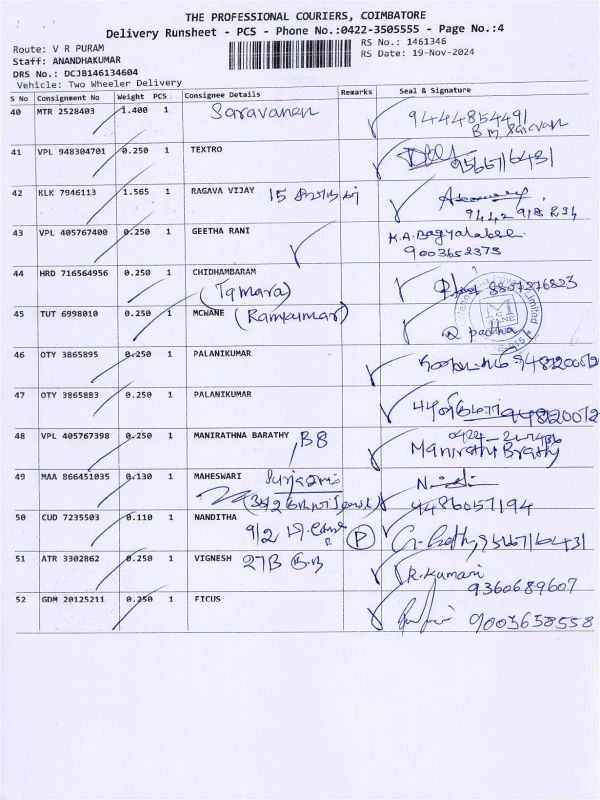 THE PROFESSIONAL COURIERS, COIMBATORE
Delivery Runsheet - PCS - Phone No.:0422-3505555 - Page No.:4
Route: V R PURAM
RS No.: 1461346
Staff: ANANDHAKUMAR
RS Date: 19-Nov-2024
DRS No.: DCJB146134604
Vehicle: Two Wheeler Delivery
S No Consignment No Weight PCS Consignee Details Remarks Seal & Signature
40 MTR 2528403 1.400 1 Saravanan 9444854491
41 VPL 948304701 0.250 1 TEXTRO 9566716431
42 KLK 7946113 1.565 1 RAGAVA VIJAY 15 9442 918 234
43 VPL 405767400 0.250 1 GEETHA RANI K.A. Bagyalabee
9003652373
44 HRD 716564956 0.250 1 CHIDHAMBARAM 8807276823
(Tamara)
45 TUT 6998010 0.250 1 MCWANE (Ramkumar) padhma
46 OTY 3865895 0.250 1 PALANIKUMAR
47 OTY 3865883 0.250 1 PALANIKUMAR
48 VPL 405767398 0.250 1 MANIRATHNA BARATHY B8 Manirathi Brathy
49 MAA 866451035 0.130 1 MAHESWARI
9486057194
50 CUD 7235503 0.110 1 NANDITHA 9/2 P 9566716431
51 ATR 3302862 0.250 1 VIGNESH 27B R. Kumari
9360689607
52 GDM 20125211 0.250 1 FICUS 9003658558